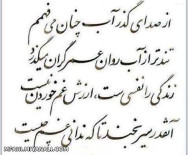 از صدای گذر آب چنان می فهمم
تندتر از آب روان عمر گران میگذرد
زندگی را نفسی است، ارزش غم خوردن نیست
آنقدر سیر بخند تا که ندانی غم چیست